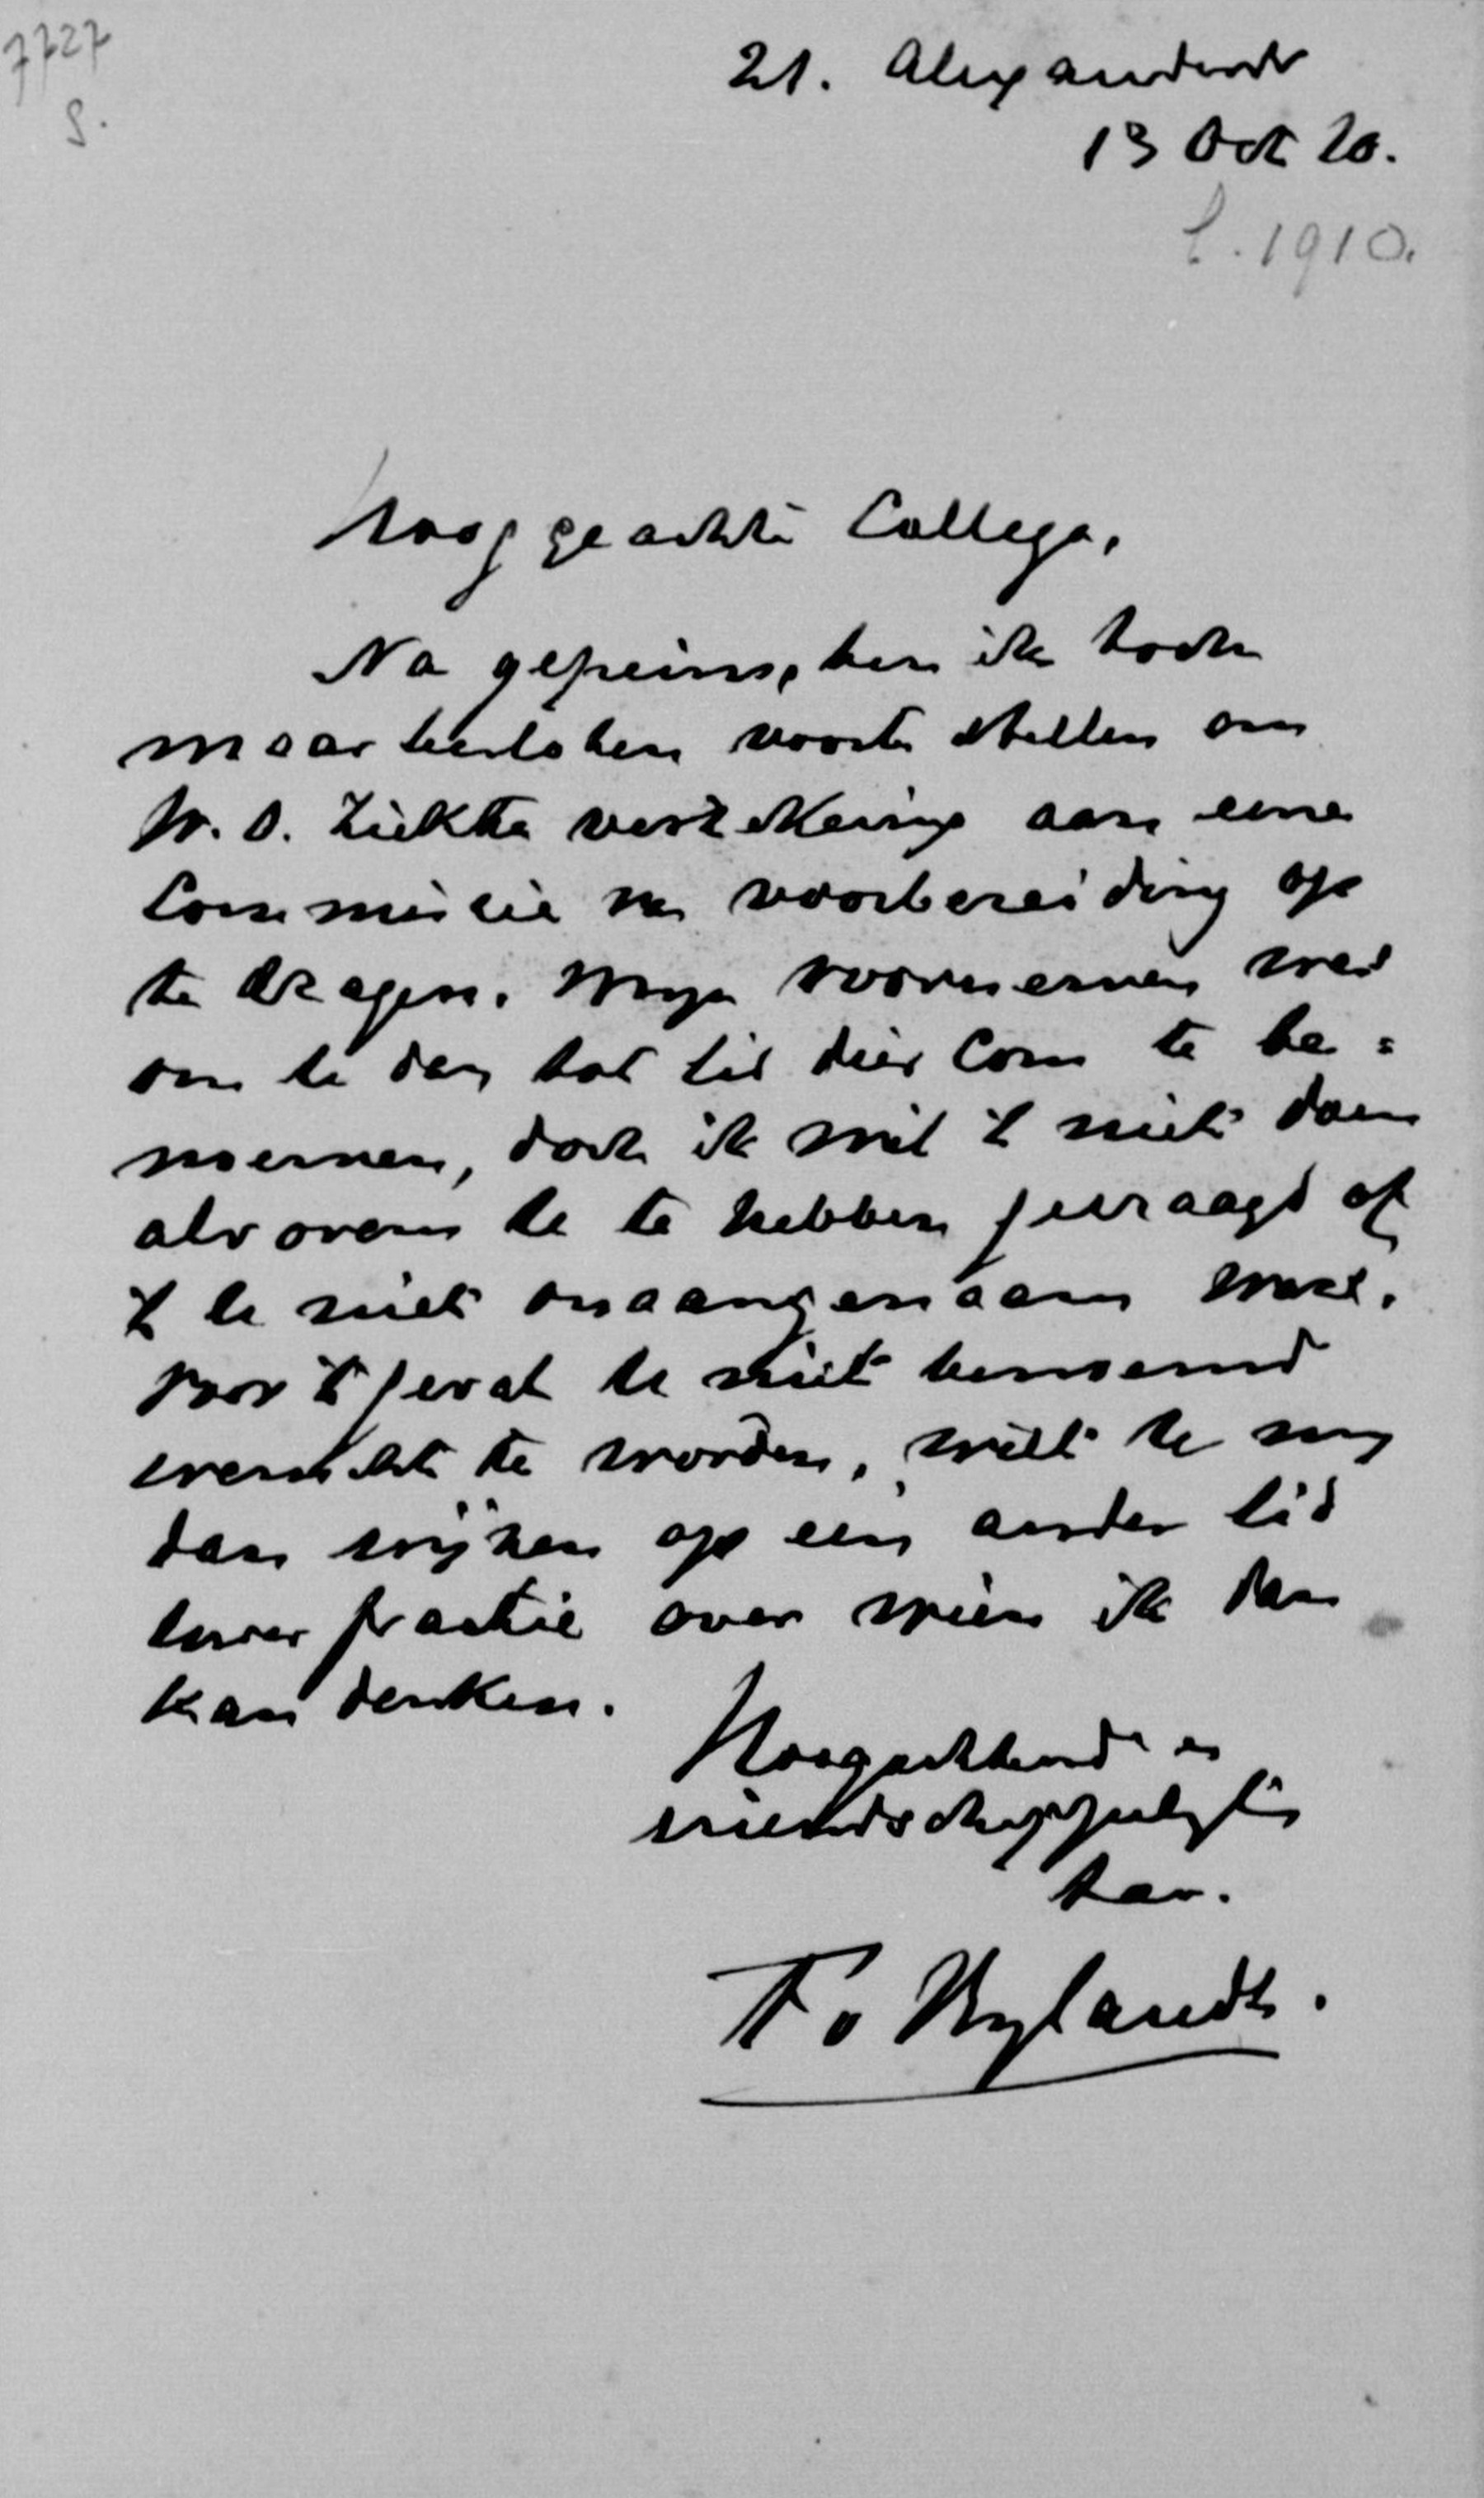 7727
S.
21. Alexanderstr
13 Oct 10.
b. 1910.
Hooggeachte Collega,
Na gepeins, ben ik toch
maar besloten voor te stellen om
W. O. Ziekteverzekering aan eene
Commissie van voorbereiding op
te dragen. Mijn voornemen was
om U dan tot lid dier Com te be=
noemen, doch ik wil 't niet doen
alvorens U te hebben gevraagd of
't U niet onaangenaam was.
Voor 't geval U niet benoemd
wenscht te worden, wilt U mij
dan wijzen op een ander lid
Uwer fractie over wien ik dan
kan denken.
Hoogachtend en
vriendschappelijk
t. av.
F v Bylandt.